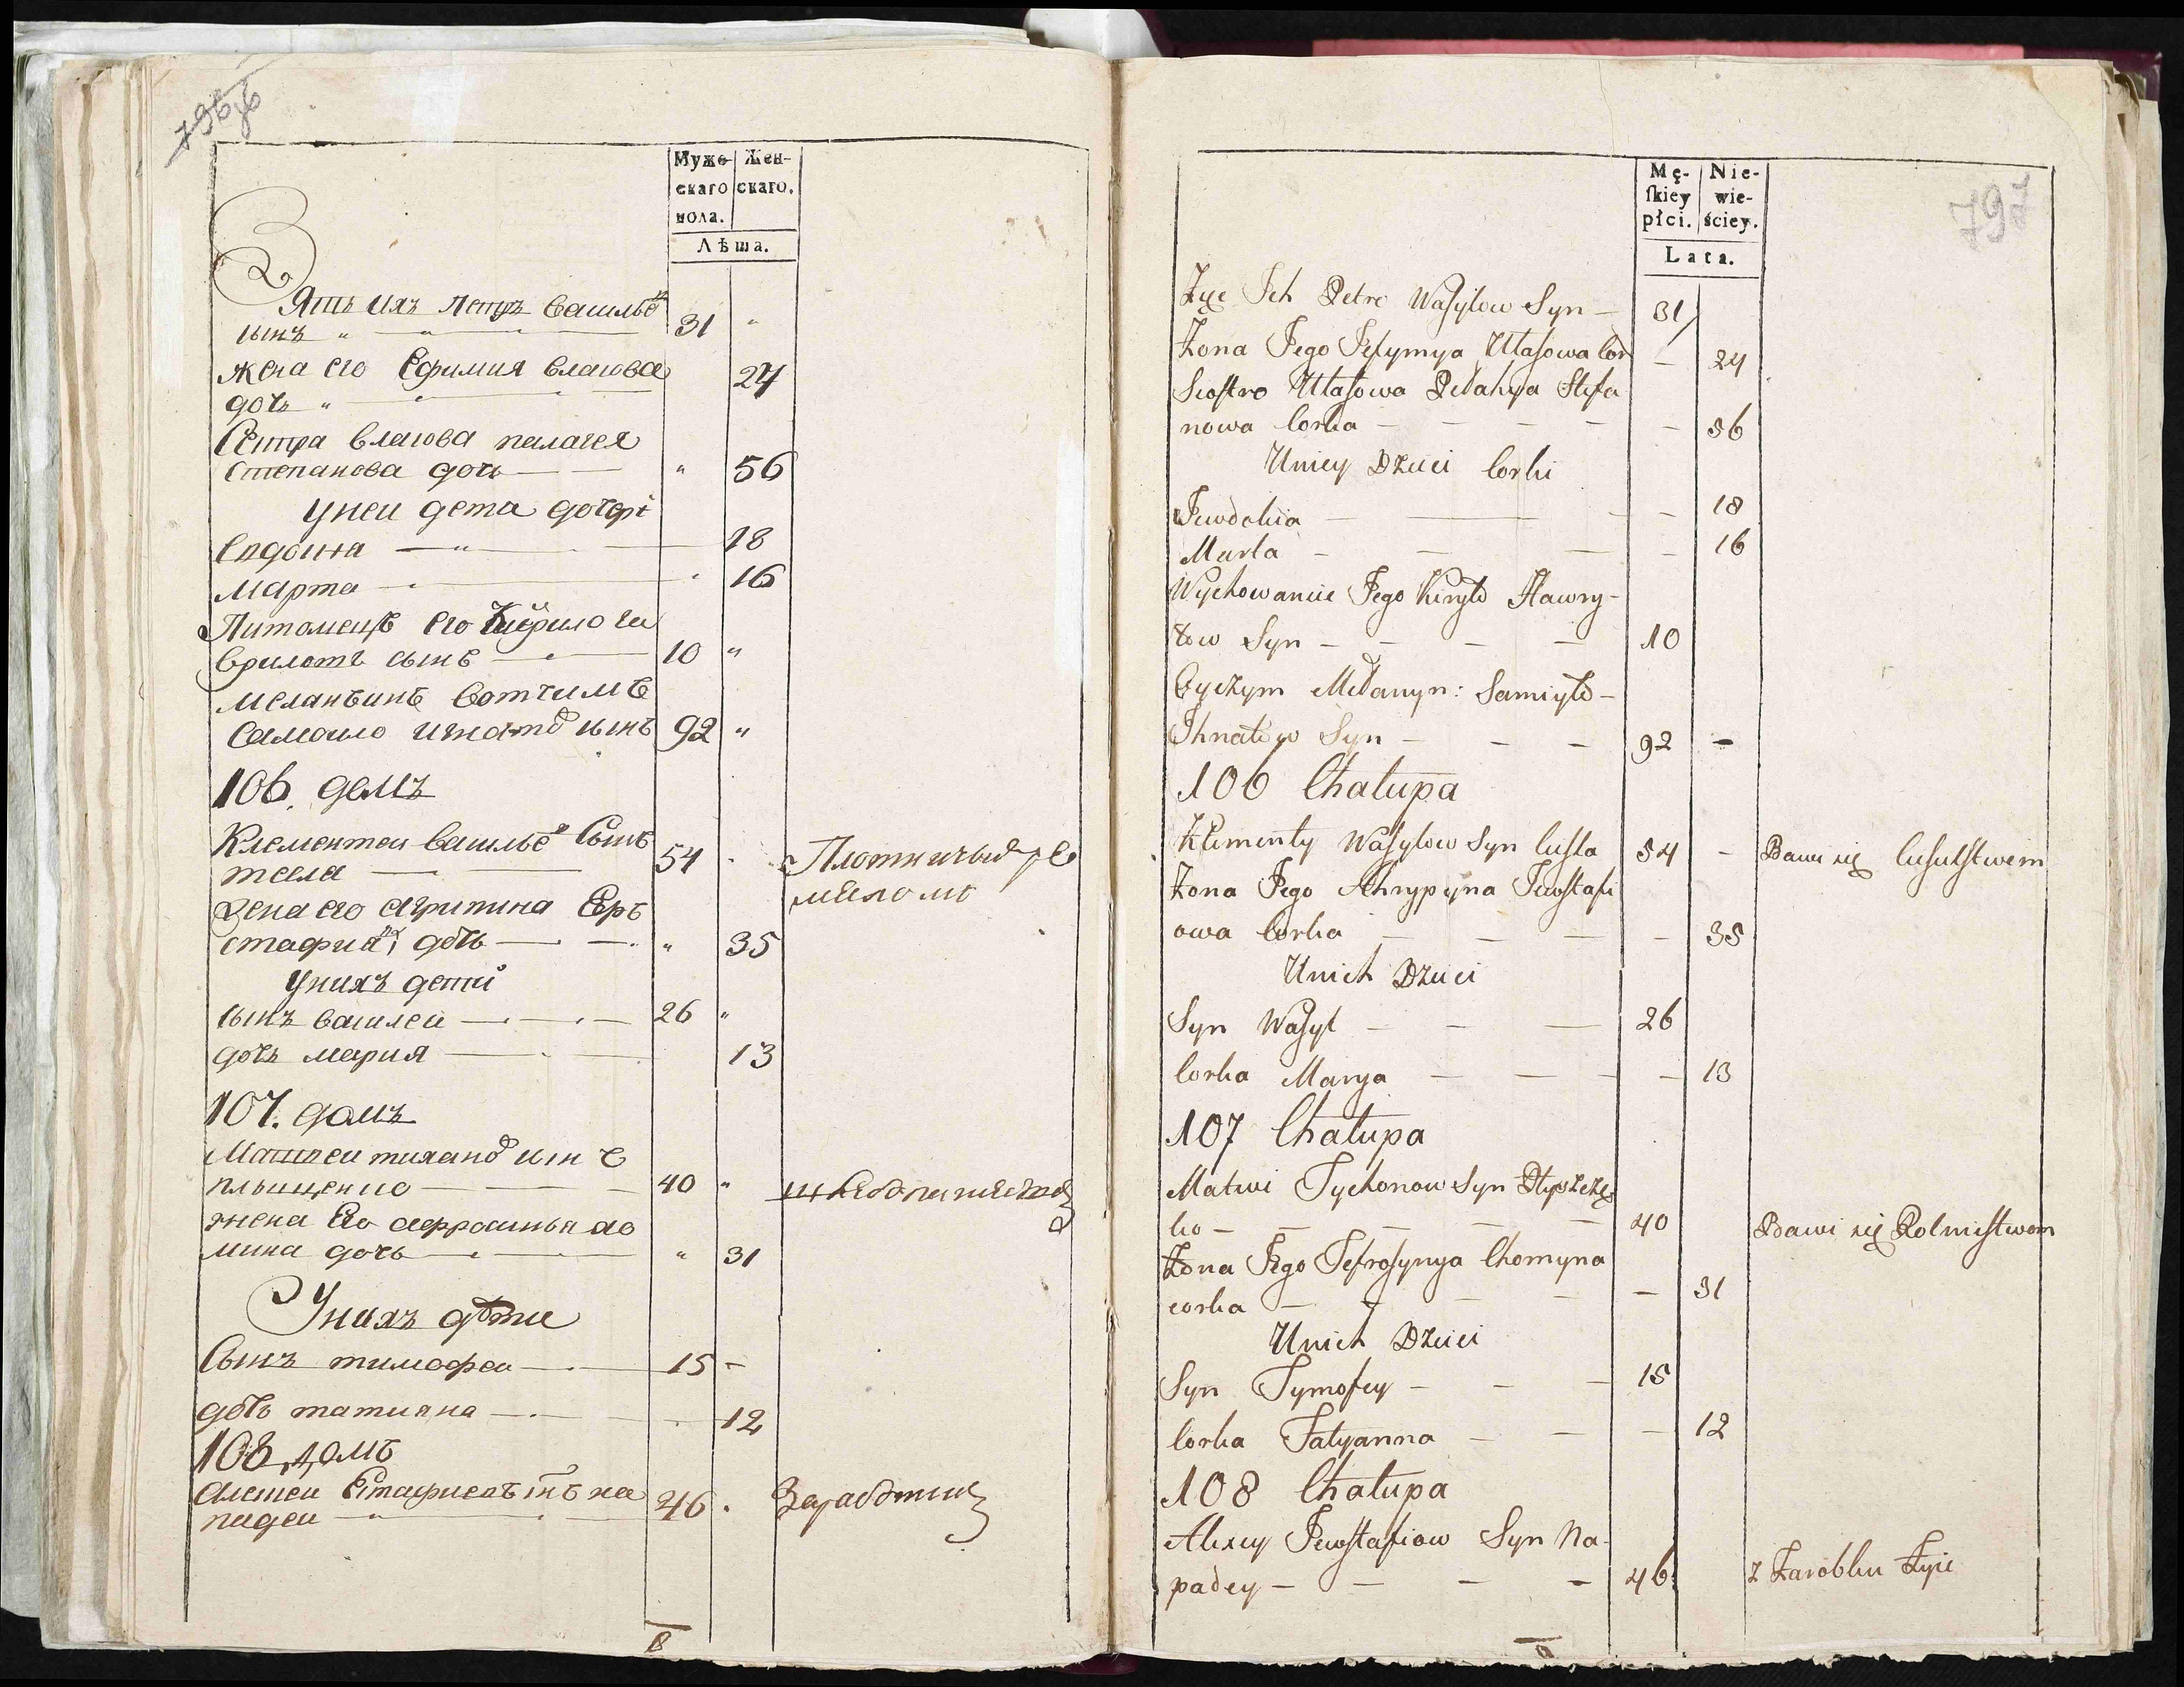 796 об
Муже- Жен-
скаго скаго.
пола.
Лѣта.
Зять ихъ Петръ Василье
сынъ 31
жена его Ефимия власова
дочь 24
Сестра власова пелагея
Степанова дочь 56
у неи дети дочери
Евдокия 18
марта 16
Питомецъ его Кирило га
врилотъ сынъ 10
меланъинъ вотчимъ
Самоило игнато сынъ 92
106. домъ
Клементеи василье Сынъ
тесла 54 Плотничьим ре
меслом
жена его агрипина Евъ
стафи дочь 35
у нихъ дети
сынъ василеи 26
дочь мария 13
107. домъ
Матвеи тихано сынъ
плыщенко 40 хлебопашество
жена его афросинья хо
мина дочь 31
У нихъ дети
Сынъ тимофеи 15
дочь татияна 12
108 домъ
алексеи Естафиевъ снъ на
падеи 46 Заработки
Mę- Nie-
ſkiey wie-
płci. ściey.
Lata.
797
Zięć Ich Petro Wasylow Syn — 31
Zona Jego Jefymya Ułasowa Cor — 24
Siostro Ułasowa Pełahya Stefa
nowa Corka — 56
U niey Dzieci Corki
Jewdokia — 18
Marta — 16
Wychowaniec Jego Kiryło Hawry-
łow Syn — 10
Oyczym Mełanyn: Samiyło —
Ihnatow Syn — 92 —
106 Chałupa
Klimenty Wasylow Syn Cieśla 54 — Bawi się Ciesielstwem
Zona Jego Ahrypyna Jewstafi
owa Corka — 35
U nich Dzieci
Syn Wasyl — 26
Corka Marya — 13
107 Chałupa
Matwi Tychonow Syn Płyszcze
ko — 40 Bawi się Rolnictwem
Zona Jego Jefrosynya Chomyna
corka — 31
U nich Dzieci
Syn Tymofey — 15
Corka Tatyanna — 12
108 Chałupa
Alexey Jewstafiow Syn Na-
padey — 46 z Zarobku Żyie